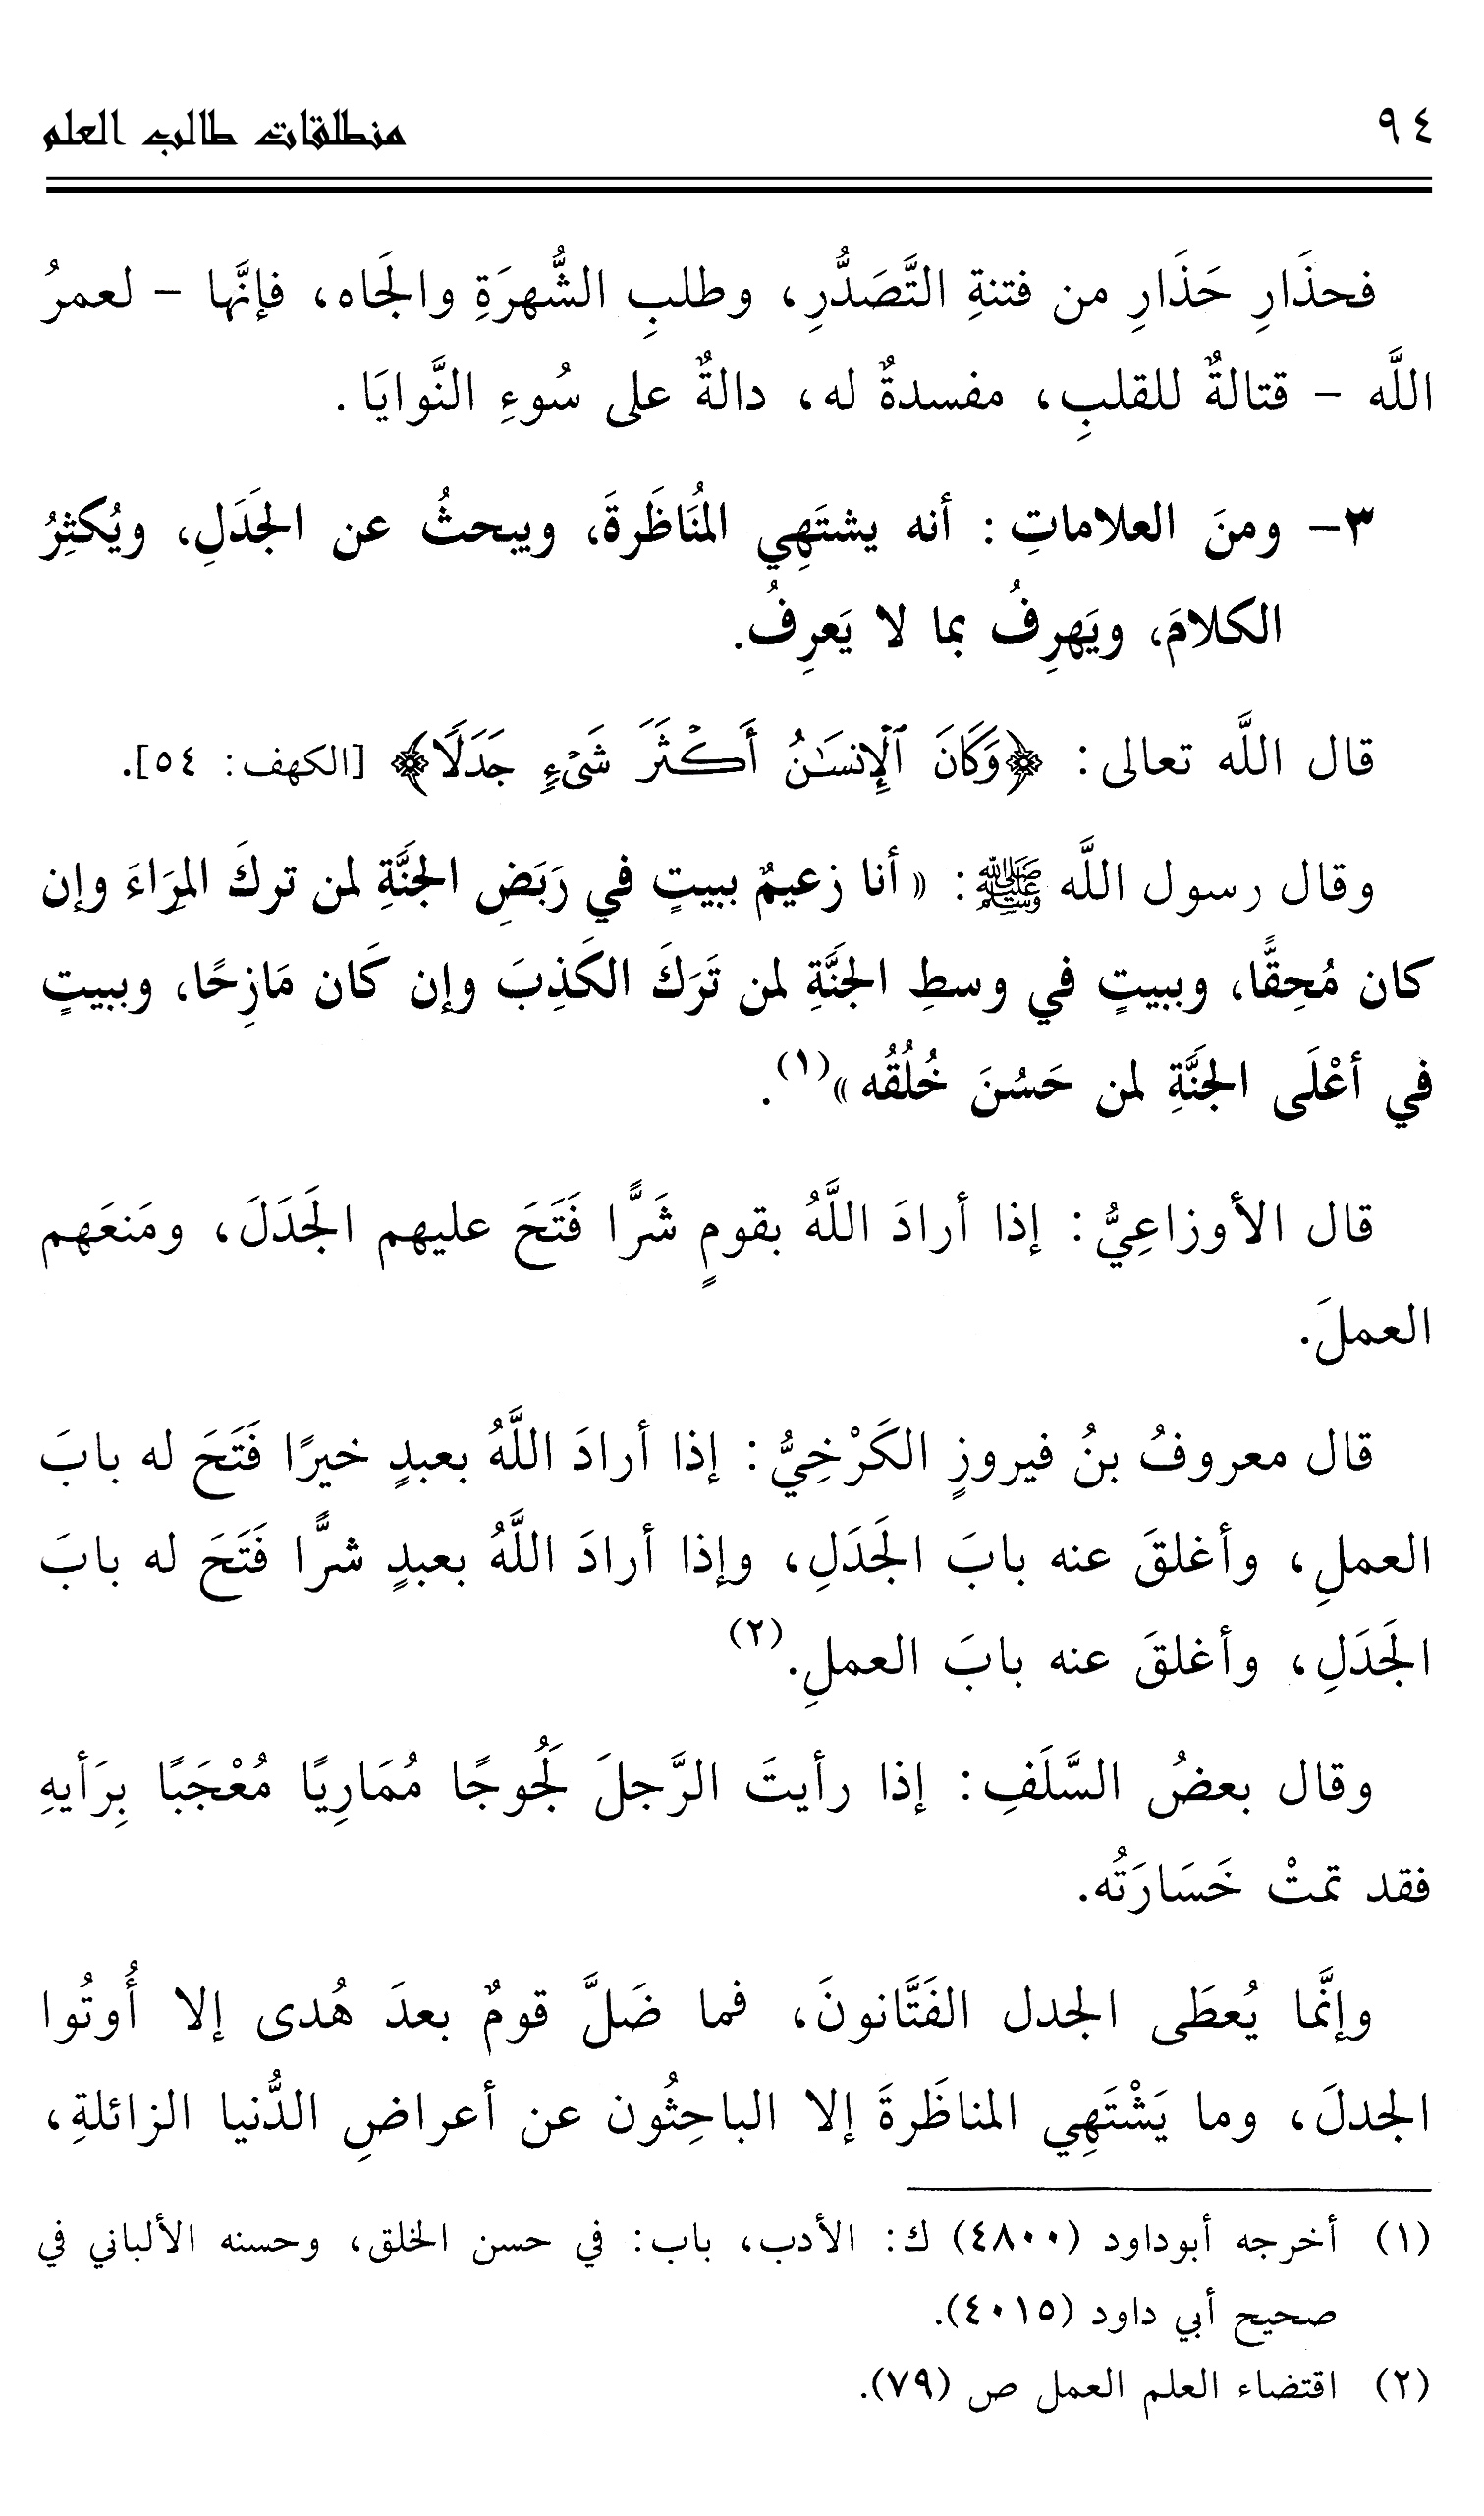 ٩٤ منطلقات طالب العلم
فحذَارِ حَذَارِ من فتنةِ التَّصَدُّرِ، وطلبِ الشُّهرَةِ والجَاه، فإنَّها – لعمرُ
اللَّه – قتالةٌ للقلبِ، مفسدةٌ له، دالةٌ على سُوءِ النَّوايَا.
٣- ومنَ العلاماتِ: أنه يشتَهِي المُنَاظَرةَ، ويبحثُ عن الجَدَلِ، ويُكثِرُ
الكلامَ، ويَهرِفُ بما لا يَعرِفُ.
قال اللَّه تعالى: ﴿وَكَانَ ٱلْإِنسَٰنُ أَكْثَرَ شَىْءٍ جَدَلًا﴾ [الكهف: ٥٤].
وقال رسول اللَّه ﷺ: «أنا زعيمٌ ببيتٍ في رَبَضِ الجنَّةِ لمن تركَ المِرَاءَ وإن
كان مُحِقًّا، وببيتٍ في وسطِ الجنَّةِ لمن تَرَكَ الكَذِبَ وإن كَان مَازِحًا، وببيتٍ
في أعْلَى الجنَّةِ لمن حَسُنَ خُلُقُه»(١).
قال الأوزاعِيُّ: إذا أرادَ اللَّهُ بقومٍ شَرًّا فَتَحَ عليهم الجَدَلَ، ومَنعَهم
العملَ.
قال معروفُ بنُ فيروزٍ الكَرْخِيُّ: إذا أرادَ اللَّهُ بعبدٍ خيرًا فَتَحَ له بابَ
العملِ، وأغلقَ عنه بابَ الجَدَلِ، وإذا أرادَ اللَّهُ بعبدٍ شرًّا فَتَحَ له بابَ
الجَدَلِ، وأغلقَ عنه بابَ العملِ.(٢)
وقال بعضُ السَّلَفِ: إذا رأيتَ الرَّجلَ لَجُوجًا مُمَارِيًا مُعْجَبًا بِرَأيهِ
فقد تمتْ خَسَارَتُه.
وإنَّما يُعطَى الجدل الفَتَّانونَ، فما ضَلَّ قومٌ بعدَ هُدى إلا أُوتُوا
الجدلَ، وما يَشْتَهِي المناظَرةَ إلا الباحِثُون عن أعراضِ الدُّنيا الزائلةِ،
(١) أخرجه أبوداود (٤٨٠٠) ك: الأدب، باب: في حسن الخلق، وحسنه الألباني في
صحيح أبي داود (٤٠١٥).
(٢) اقتضاء العلم العمل ص (٧٩).